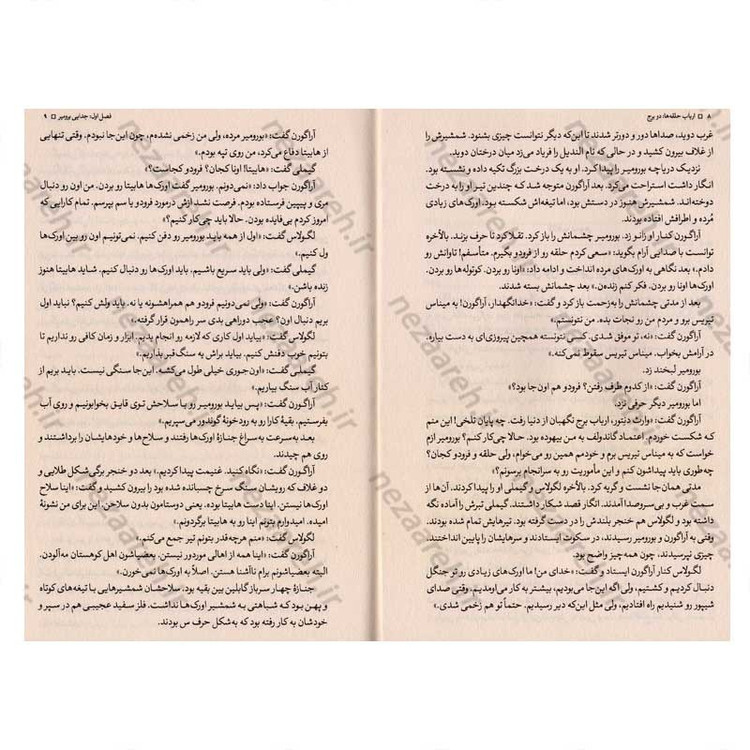 ۸ □ ارباب حلقه‌ها: دو برج
غرب دوید، صداها دور و دورتر شدند تا این‌که دیگر نتوانست چیزی بشنود. شمشیرش را
از غلاف بیرون کشید و در حالی که نام الندیل را فریاد می‌زد میان درختان دوید.
نزدیک دریاچه بورومیر را پیدا کرد. او به یک درخت بزرگ تکیه داده و نشسته بود.
انگار داشت استراحت می‌کرد. بعد آراگورن متوجه شد که چندین تیر او را به درخت
دوخته‌اند. شمشیرش هنوز در دستش بود، اما تیغه‌اش شکسته بود. اورک‌های زیادی
مُرده و اطرافش افتاده بودند.
آراگورن کنار او زانو زد. بورومیر چشمانش را باز کرد. تقلا کرد تا حرف بزند. بالأخره
توانست با صدایی آرام بگوید: «سعی کردم حلقه رو از فرودو بگیرم. متأسفم! تاوانش رو
دادم.» بعد نگاهی به اورک‌های مرده انداخت و ادامه داد: «اونا رو بردن. کوتوله‌ها رو بردن.
اورک‌ها اونا رو بردن. فکر کنم زنده‌ن.» بعد چشمانش بسته شدند.
بعد از مدتی چشمانش را به‌زحمت باز کرد و گفت: «خدانگهدار، آراگورن! به میناس
تیریس برو و مردم من رو نجات بده. من نتونستم.»
آراگورن گفت: «نه، تو موفق شدی. کسی نتونسته همچین پیروزی‌ای به دست بیاره.
در آرامش بخواب. میناس تیریس سقوط نمی‌کنه.»
بورومیر لبخند زد.
آراگورن گفت: «از کدوم طرف رفتن؟ فرودو هم اون‌جا بود؟»
اما بورومیر دیگر حرفی نزد.
آراگورن گفت: «وارث دینتور، ارباب برج نگهبان از دنیا رفت. چه پایان تلخی! این منم
که شکست خوردم. اعتماد گاندولف به من بیهوده بود. حالا چی‌کار کنم؟ بورومیر ازم
خواست که به میناس تیریس برم و خودمم همین رو می‌خوام، ولی حلقه و فرودو کجان؟
چه‌طوری باید پیداشون کنم و این مأموریت رو به سرانجام برسونم؟»
مدتی همان‌جا نشست و گریه کرد. بالأخره لگولاس و گیملی او را پیدا کردند. آن‌ها از
سمت غرب و بی‌سروصدا آمدند. انگار قصد شکار داشتند. گیملی تبرش را آماده نگه
داشته بود و لگولاس هم خنجر بلندش را در دست گرفته بود. تیرهایش تمام شده بودند.
وقتی به آراگورن و بورومیر رسیدند، در سکوت ایستادند و سرهایشان را پایین انداختند.
چیزی نپرسیدند، چون همه‌چیز واضح بود.
لگولاس کنار آراگورن ایستاد و گفت: «خدای من! ما اورک‌های زیادی رو تو جنگل
دنبال کردیم و کشتیم، ولی اگه این‌جا می‌بودیم، بیشتر به کار می‌اومدیم. وقتی صدای
شیپور رو شنیدیم راه افتادیم، ولی مثل این‌که دیر رسیدیم. حتماً تو هم زخمی شدی.»
فصل اول: جدایی بورومیر □ ۹
آراگورن گفت: «بورومیر مرده، ولی من زخمی نشده‌م، چون این‌جا نبودم. وقتی تنهایی
از هابیتا دفاع می‌کرد، من روی تپه بودم.»
گیملی گفت: «هابیتا! اونا کجان؟ فرودو کجاست؟»
آراگورن جواب داد: «نمی‌دونم. بورومیر گفت اورک‌ها هابیتا رو بردن. من اون رو دنبال
مری و پیپین فرستاده بودم. فرصت نشد ازش درمورد فرودو یا سم بپرسم. تمام کارایی که
امروز کردم بی‌فایده بودن. حالا باید چی‌کار کنیم؟»
لگولاس گفت: «اول از همه باید بورومیر رو دفن کنیم. نمی‌تونیم اون رو بین اورک‌ها
ول کنیم.»
گیملی گفت: «ولی باید سریع باشیم. باید اورک‌ها رو دنبال کنیم. شاید هابیتا هنوز
زنده باشن.»
آراگورن گفت: «ولی نمی‌دونیم فرودو هم همراهشونه یا نه. باید ولش کنیم؟ نباید اول
بریم دنبال اون؟ عجب دوراهی بدی سر راهمون قرار گرفته.»
لگولاس گفت: «بیاید اول کاری که لازمه رو انجام بدیم. ابزار و زمان کافی رو نداریم تا
بتونیم خوب دفنش کنیم. بیاید براش یه سنگ‌قبر بذاریم.»
گیملی گفت: «اون‌جوری خیلی طول می‌کشه. این‌جا سنگی نیست. باید بریم از
کنار آب سنگ بیاریم.»
آراگورن گفت: «پس بیاید بورومیر رو با سلاحش توی قایق بخوابونیم و روی آب
بفرستیم. بقیهٔ کارا رو به رودخونهٔ گوندور می‌سپریم.»
بعد به‌سرعت به سراغ جنازهٔ اورک‌ها رفتند و سلاح‌ها و خودهایشان را برداشتند و
روی هم چیدند.
آراگورن گفت: «نگاه کنید. غنیمت پیدا کردیم.» بعد دو خنجر برگی‌شکل طلایی و
دو غلاف که رویشان سنگ سرخ چسبانده شده بود را بیرون کشید و گفت: «اینا سلاح
اورک‌ها نیستن. اینا دست هابیتا بوده. یعنی دوستامون بدون سلاحن. این برای من نشونهٔ
امیده. امیدوارم بتونم اینا رو به هابیتا برگردونم.»
لگولاس گفت: «منم هرچه‌قدر بتونم تیر جمع می‌کنم.»
آراگورن گفت: «اینا همه از اهالی موردور نیستن. بعضیاشون اهل کوهستان مه‌آلودن.
البته بعضیاشونم برام ناآشنا هستن. اصلاً به اورک‌ها نمی‌خورن.»
جنازهٔ چهار سرباز گابلین بین بقیه بود. سلاحشان شمشیرهایی با تیغه‌های کوتاه
و پهن بود که شباهتی به شمشیر اورک‌ها نداشت. فلز سفید عجیبی هم در سپر و
خودشان به کار رفته بود که به‌شکل حرف س بودند.
nezaareh.ir